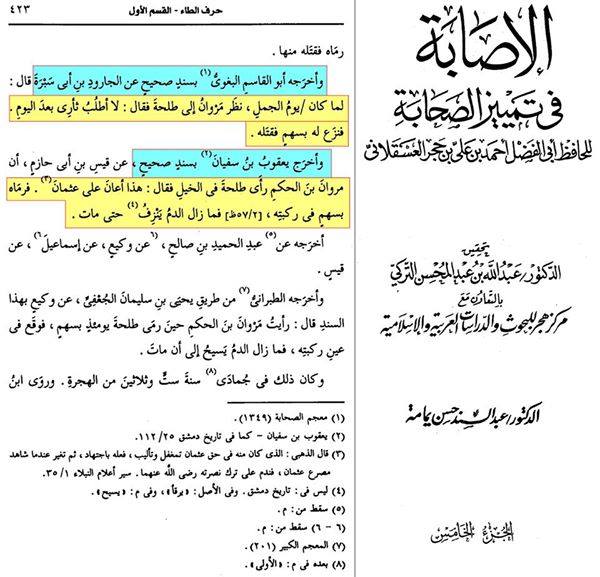 حرف الطاء - القسم الأول ٤٢٣
رماه فقتَله منها .
وأخرَجه أبو القاسمِ البغويُّ(١) بسندٍ صحيحٍ عن الجارودِ بنِ أبي سَبْرَةَ قال :
لما كان /يومُ الجملِ ، نظَر مَرْوانُ إلى طلحةَ فقال : لا أطلُبُ ثأرِى بعدَ اليومِ .
فنزَع له بسهمٍ فقتَله .
وأخرَج يعقوبُ بنُ سفيانَ(٢) بسندٍ صحيحٍ ، عن قيسِ بنِ أبي حازمٍ ، أن
مروانَ بنَ الحكمِ رأَى طلحةَ في الخيلِ فقال : هذا أعانَ على عثمانَ(٣) . فرمَاه
بسهمٍ في ركبتِه ، [٥٧/٢ظ] فما زال الدمُ يَنْزِفُ(٤) حتى مات .
أخرَجه عن(٥) عبدِ الحميدِ بنِ صالحٍ ، (٦عن وكيعٍ ، عن إسماعيلَ٦) ، عن
قيسٍ .
وأخرَجه الطبرانيُّ(٧) من طريقِ يحيى بنِ سليمانَ الجُعْفِيِّ ، عن وكيعٍ بهذا
السندِ قال : رأيتُ مَرْوانَ بنَ الحكمِ حينَ رمَى طلحةَ يومئذٍ بسهمٍ ، فوقَع في
عينِ ركبتِه ، فما زال الدمُ يَسيحُ إلى أن ماتَ .
وكان ذلك في جُمادَى(٨) سنةَ ستٍّ وثلاثينَ من الهجرةِ . وروَى ابنُ
(١) معجم الصحابة (١٣٤٩) .
(٢) يعقوب بن سفيان - كما في تاريخ دمشق ١١٢/٢٥ .
(٣) قال الذهبى : الذى كان منه فى حق عثمان تمغفل وتأليب ، فعله باجتهاد ، ثم تغير عندما شاهد
مصرع عثمان ، فندم على ترك نصرته رضى الله عنهما . سير أعلام النبلاء ٣٥/١ .
(٤) ليس فى : تاريخ دمشق . وفى الأصل : «يرقأ» ، وفى م : «يسيح» .
(٥) سقط من : م .
(٦ - ٦) سقط من : م .
(٧) المعجم الكبير (٢٠١) .
(٨) بعده فى م : «الأولى» .
الإصابة
في تمييز الصحابة
للحافظ أبي الفضل أحمد بن علي بن حجر العسقلاني
بتحقيق
الدكتور/ عبد الله بن عبد المحسن التركي
بالتعاون مع
مركز هجر للبحوث والدراسات العربية والإسلامية
الدكتور/ عبد السند حسن يمامة
الجزء الخامس